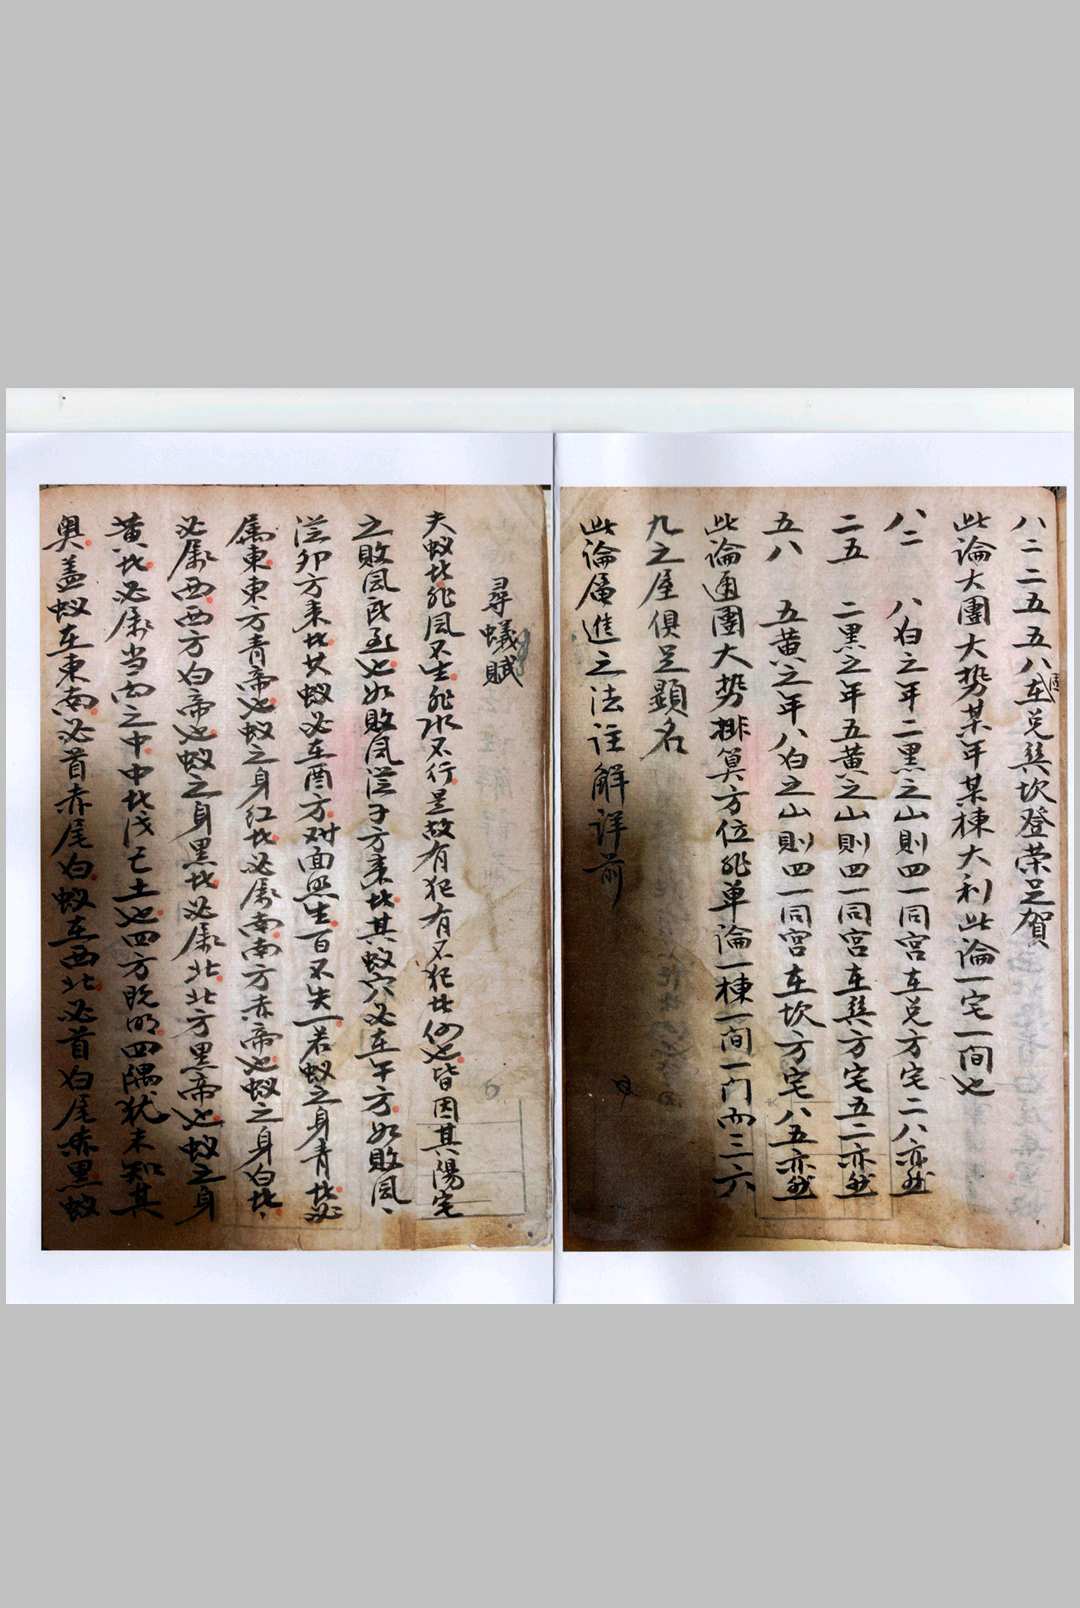 八二二五五八在兑巽坎登荣足賀
此論大團大势某年某棟大利此論一宅一间也
八二 八白之年二黑之山則四一同宫在兑方宅二八亦然
二五 二黑之年五黄之山則四一同宫在巽方宅五二亦然
五八 五黄之年八白之山則四一同宫在坎方宅八五亦然
此論通團大势排算方位非单論一棟一间一门而三六
九之屋俱足顯名
此論屬進之法註解详前
尋蟻賦
夫蚁者非凤不生非水不行是故有犯有不犯者何也皆因其陽宅
之敗凤所致也如敗凤從子方来者其蚁穴必在午方如敗凤
從卯方来者其蚁必在酉方对面照生百不失一若蚁之身青者必
属東東方青帝也蚁之身红者必属南南方赤帝也蚁之身白者
必属西西方白帝也蚁之身黑者必属北北方黑帝也蚁之身
黄者必属当中之中中者戊己土也四方既明四隅犹未知其
奥盖蚁在東南必首赤尾白蚁在西北必首白尾赤黑蚁